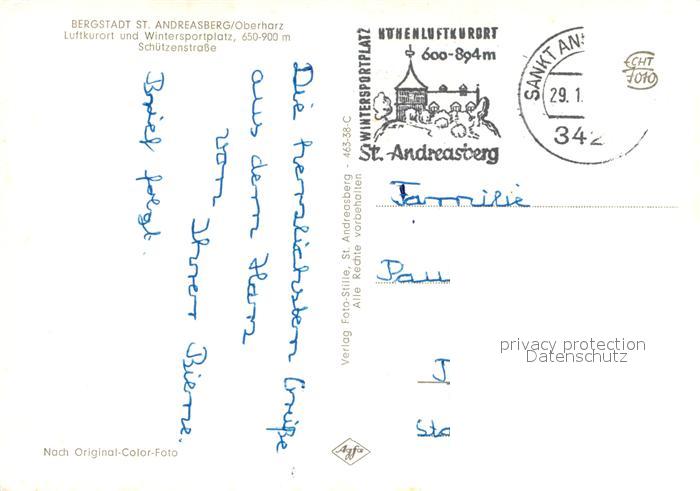 BERGSTADT ST. ANDREASBERG/Oberharz
Luftkurort und Wintersportplatz, 650-900 m
Schützenstraße
Die herzlichsten Grüße
aus dem Harz
von
Ihrer
Brief folgt.
Nach Original-Color-Foto
Verlag Foto-Stille, St. Andreasberg - 463-38-C
Alle Rechte vorbehalten
Agfa
WINTERSPORTPLATZ
HÖHENLUFTKURORT
600-894m
St. Andreasberg
SANKT AN
29. 1.
342
ECHT
7010
Familie
Pau
J
Sta
privacy protection
Datenschutz